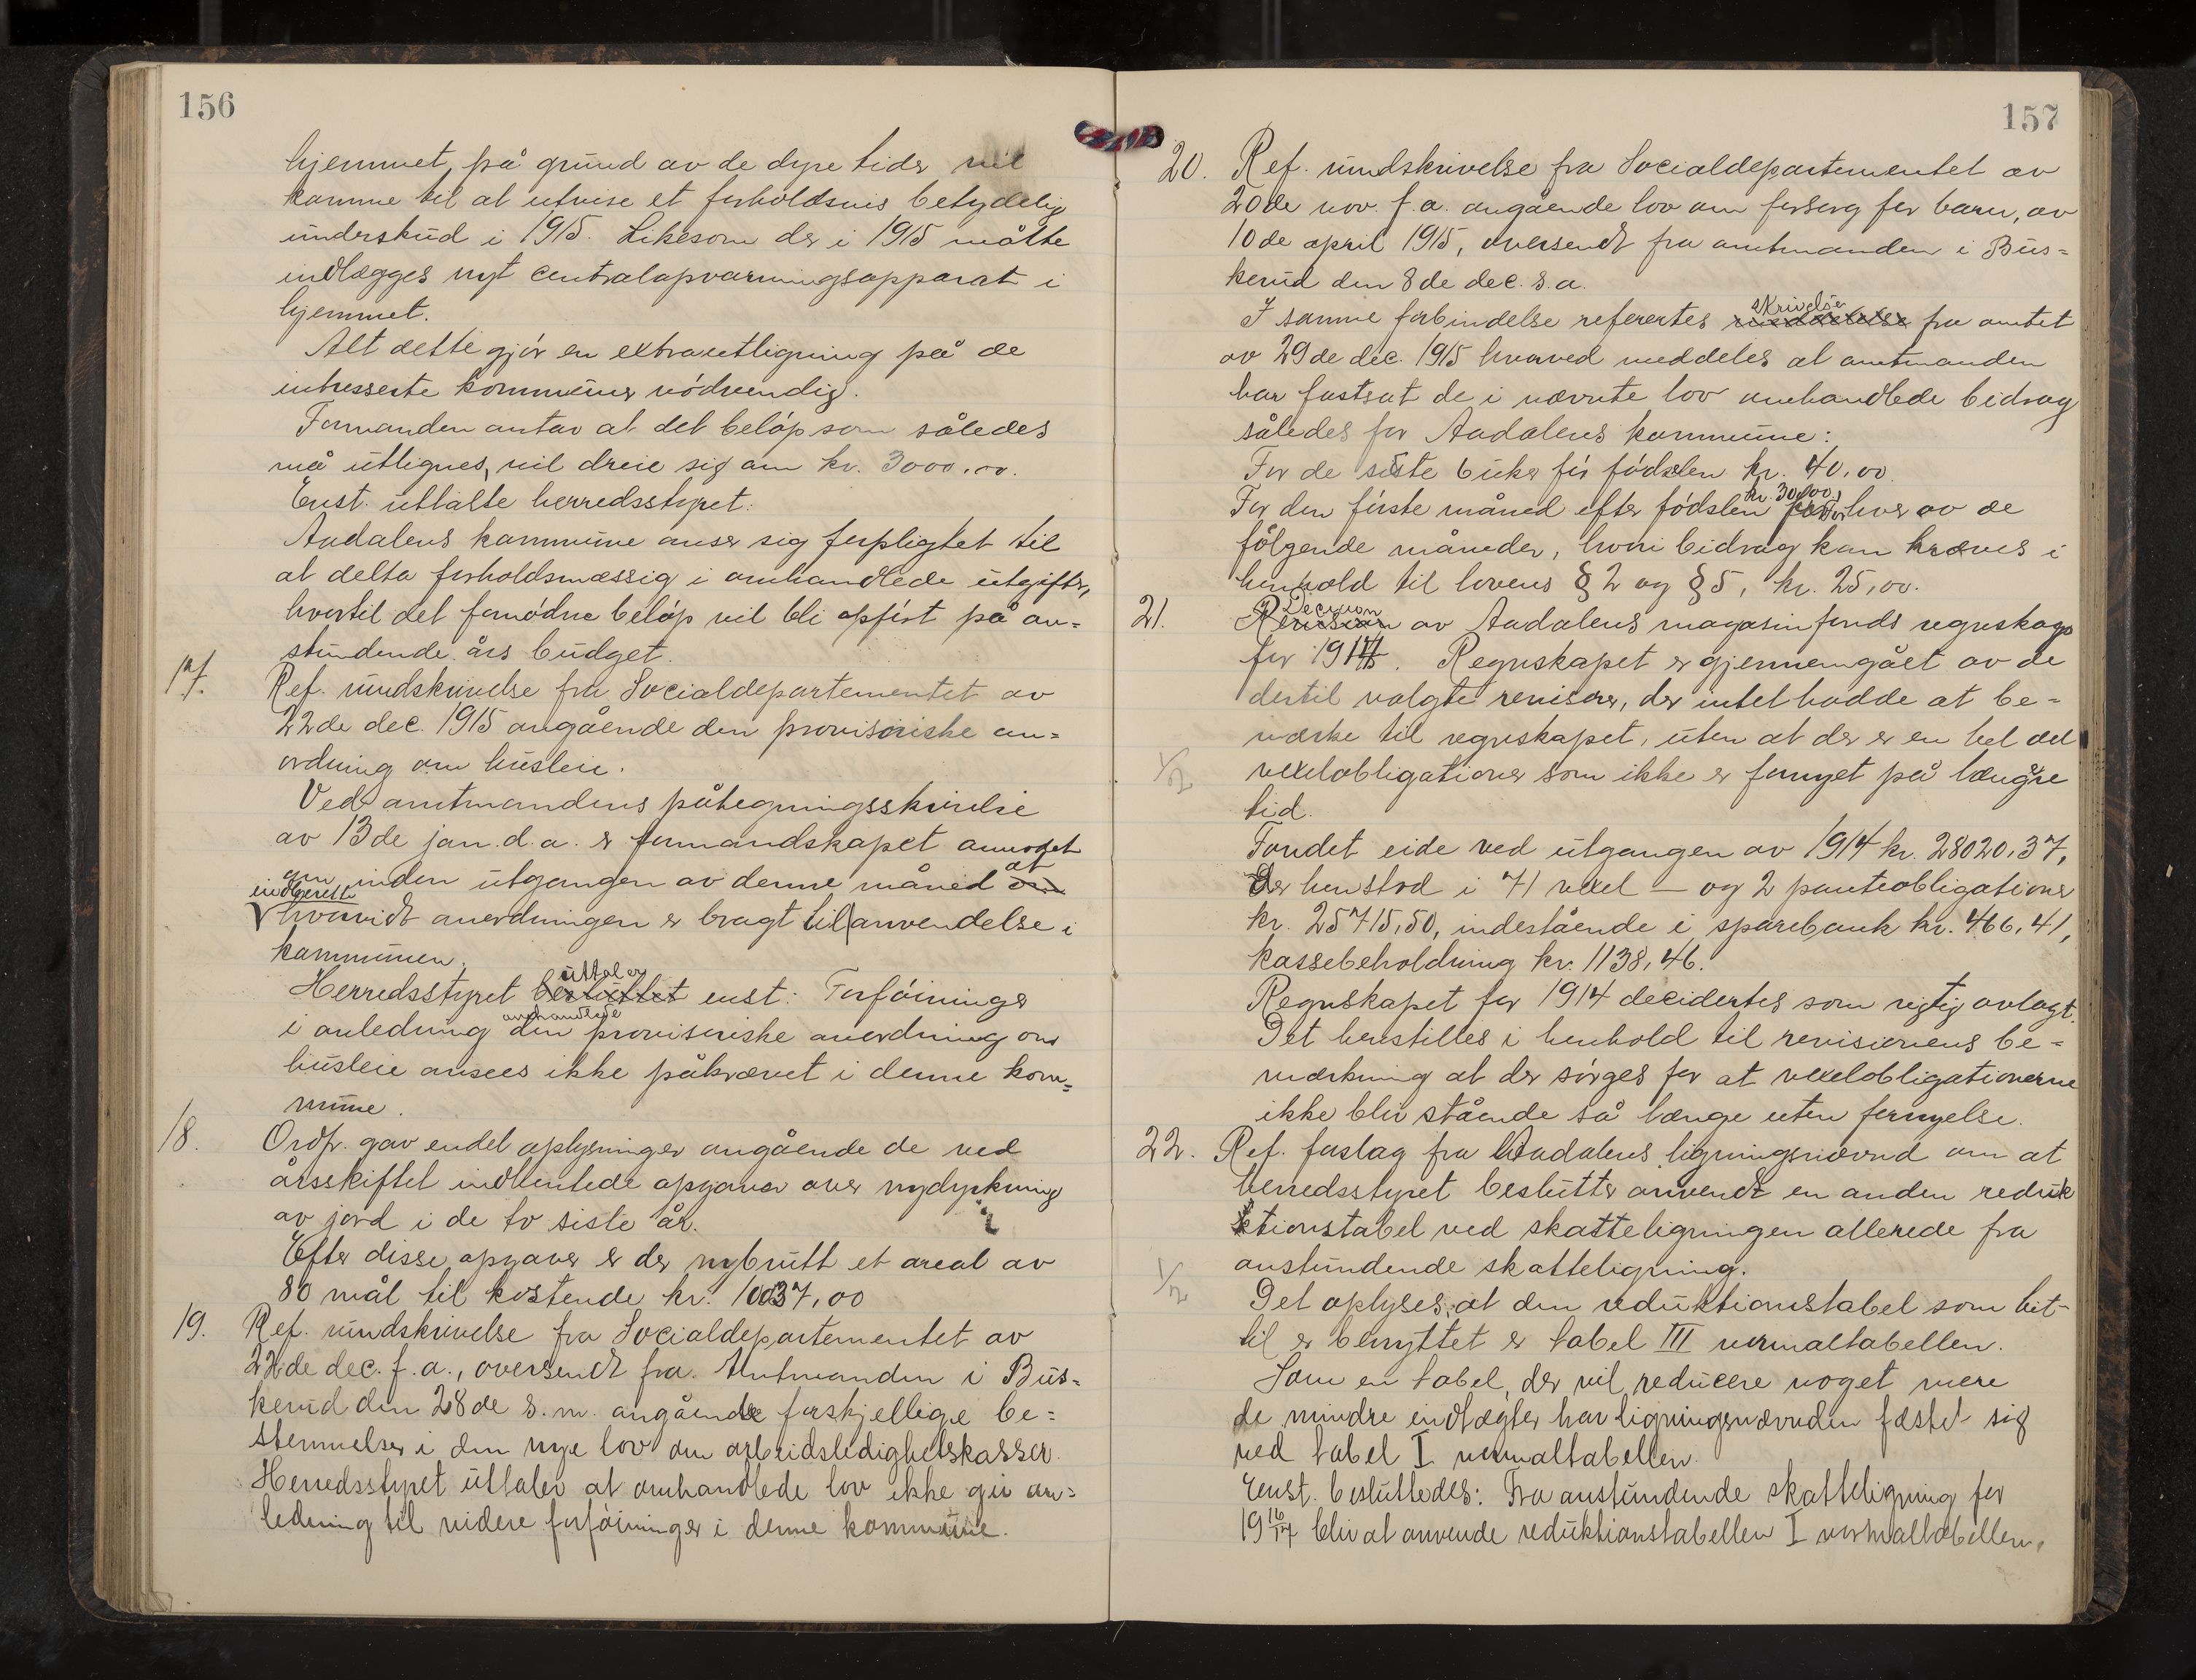 156
hjemmet, på grund av de dyre tider vil
komme til at utvise et forholdsvis betydelig
underskud i 1915. Likesom der i 1915 måtte
indlægges nyt centralopvarmingsapparat i
hjemmet.
Alt dette gjör en extrautligning på de
intresserte kommuner nödvendig.
Formanden antar at det belöp som således
må utlignes, vil dreie sig om kr. 3000,00.
Enst. uttalte herredsstyret:
Aadalens kommune anser sig forpligtet til
at delta forholdsmæssig i omhandlede utgifter,
hvortil det fornödne belöp vil bli opfört på an=
stundende års budget.
17. Ref. rundskrivelse fra Socialdepartementet av
22de dec. 1915 angående den provisoriske an=
ordning om husleie.
Ved amtmandens påtegningsskrivelse
av 13de jan. d.a. er formandskapet anmodet
om inden utgangen av denne måned at
indberette
hvorvidt anordningen er bragt til anvendelse i
kommunen.
uttaler
Herredsstyret besluttet enst: Forföininger
omhandlede
i anledning den provisoriske anordning om
husleie ansees ikke påkrævet i denne kom=
mune.
18. Ordf. gav endel oplysninger angående de ved
årsskiftet indhentede opgaver over nydyrkning
av jord i de to siste år.
Efter disse opgaver er der nybrutt et areal av
80 mål til kostende kr. 10037,00
19. Ref. rundskrivelse fra Socialdepartementet av
22de dec. f.a., oversendt fra Amtmanden i Bus=
kerud den 28de s.m. angående forskjellige be=
stemmelser i den nye lov om arbeidsledighetskasser.
Herredsstyret uttaler at omhandlede lov ikke gir an=
ledning til videre forföininger i denne kommune.
157
20. Ref. rundskrivelse fra Socialdepartementet av
20de nov. f.a. angående lov om forsorg for barn, av
10de april 1915, oversendt fra amtmanden i Bus=
kerud den 8de dec. s.a.
skrivelse
I samme forbindelse refertes fra amtet
av 29de dec. 1915 hvorved meddeles at amtmanden
har fastsat de i nævnte lov omhandlede bidrag
således for Aadalens kommune:
For de siste 6 uker för födselen kr. 40,00.
kr. 30,00,
For den förste måned efter födslen For hver av de
fölgende måneder, hvori bidrag kan kræves i
henhold til lovens § 2 og § 5, kr. 25,00.
Decision
21. Revision av Aadalens magasinfonds regnskap
for 1914. Regnskapet er gjennemgået av de
dertil valgte revisorer, der intet hadde at be=
mærke til regnskapet, uten at der er en hel del
1/2
vexelobligationer som ikke er fornyet på længre
tid.
Fondet eide ved utgangen av 1914 kr. 28020,37,
Der henstod i 71 vexel – og 2 panteobligationer
kr. 25715,50, indestående i sparebank kr. 466,41,
kassebeholdning kr. 1138,46.
Regnskapet for 1914 decidertes som rigtig avlagt.
Det henstilles i henhold til revisionens be=
mærkning at der sörges for at vexelobligationerne
ikke blir stående så længe uten fornyelse.
22. Ref. forslag fra Aadalens ligningsnævnd om at
herredsstyret beslutter anvendt en anden reduk
ktionstabel ved skatteligningen allerede fra
1/2
anstundende skatteligning.
Det oplyses at den reduktionstabel som hit-
til er benyttet er tabel III normaltabellen.
Som en tabel, der vil reducere noget mere
de mindre indtægter har ligningsnævnden fæstet sig
ved tabel I normaltabellen.
Enst. besluttedes: Fra anstundende skatteligning for
19 16/17 blir at anvende reduktionstabellen I normaltabellen.